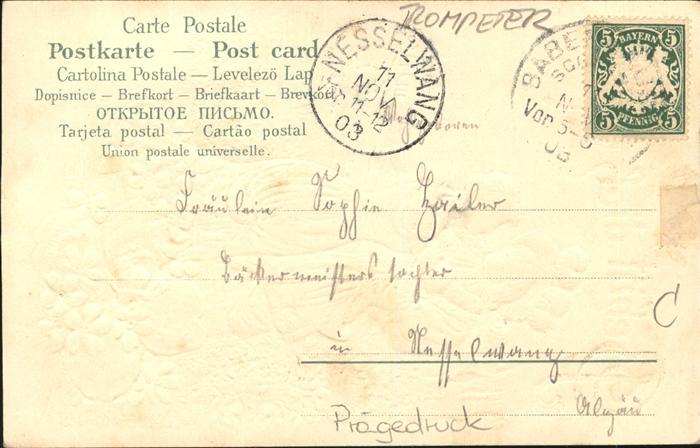 TROMPETER
Carte Postale
Postkarte — Post card
Cartolina Postale — Levelező Lap
Dopisnice — Brefkort — Briefkaart — Brevkort
ОТКРЫТОЕ ПИСЬМО.
Tarjeta postal — Cartão postal
Union postale universelle.
NESSELWANG
11
NOV
11-12
03
BABE
Vor.
5
BAYERN
5
5
PFENNIG
5
Fräulein Sophie Zeiler
Bäckermeisters tochter
in Nesselwang
Algäu
C
Prägedruck